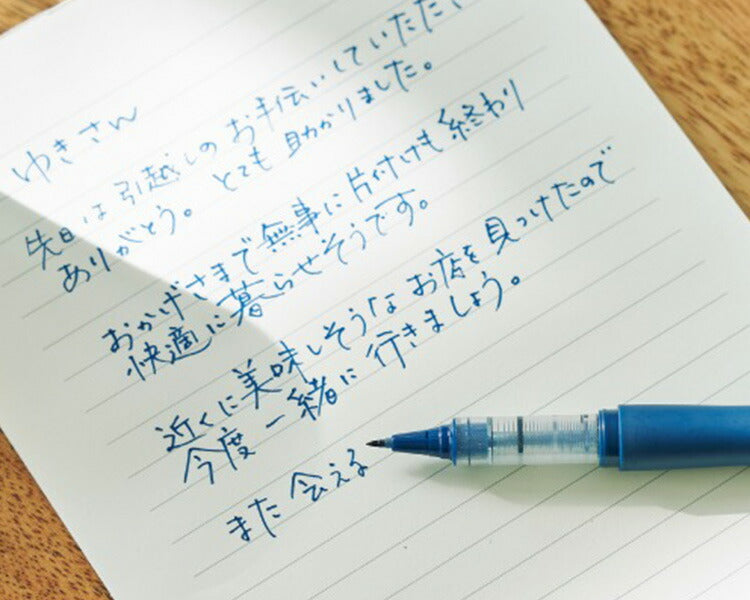 ゆきさん
先日は引越しのお手伝いしていただい
ありがとう。とても助かりました。
おかげさまで無事に片付けも終わり
快適に暮らせそうです。
近くに美味しそうなお店を見つけたので
今度一緒に行きましょう。
また会える